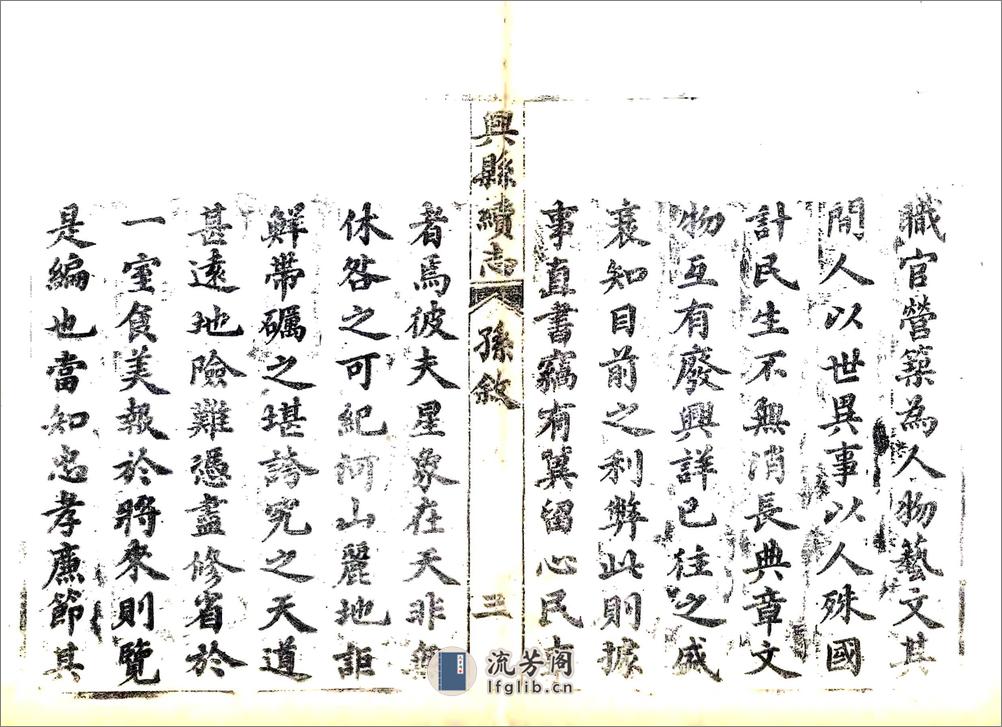 職官營築為人物藝文其
間人以世異事以人殊國
計民生不無消長典章文
物互有廢興詳已往之盛
衰知目前之利弊此則據
事直書竊有冀留心民
興縣續志
孫敘
三
者焉彼夫星象在天非
休咎之可紀河山麗地詎
鮮帶礪之堪誇究之天道
甚遠地險難憑盡修省於
一室食美報於將來則覽
是編也當知忠孝廉節其
流芳阁
lfglib.cn